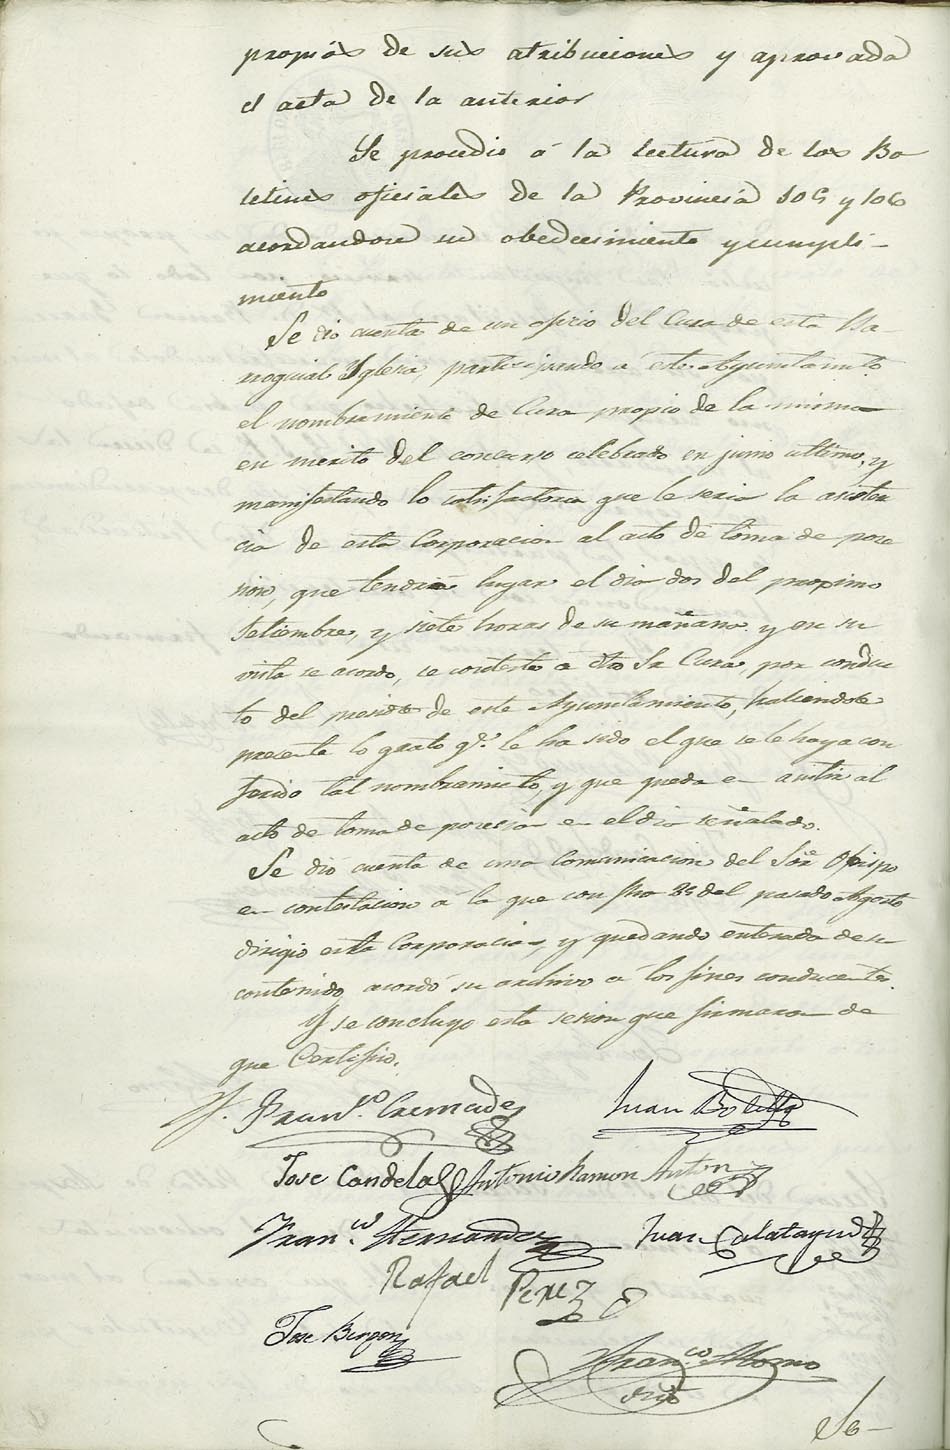 propiós de sus atribuciones y aprovada
el acta de la anterior
Se procedio á la lectura de los Bo
letines oficiales de la Provincia 105 y 106
acordandose su obedecimiento y cumpli-
miento
Se dio cuenta de un oficio del Cura de esta Pa-
rroquial Yglesia, participando a este Ayuntamto.
el nombramiento de Cura propio de la misma
en merito del concurso celebrado en junio ultimo, y
manifestando lo satisfactorio que le seria la asisten
cia de esta Corporacion al acto de toma de pose
sion, que tendrá lugar el dia dos del proximo
Setiembre, y siete horas de su mañana. y en su
vista se acordo, se conteste a dho Sr Cura, por conduc
to del presidte de este Ayuntamiento, haciendole
presente lo grato qe. le ha sido el que se le haya con
ferido tal nombramiento, y que queda en asistir al
acto de toma de posesion en el dia señalado.
Se dió cuenta de una Comunicacion del Sor Obispo
en contestacion á la que con fha 25 del pasado Agosto
dirigio esta Corporacion, y quedando enterada de su
contenido acordó su archivo a los fines conducentes.
Y se concluyo esta sesion que firmaron de
que Certifico.
Franco. Cremades
Juan Botella
Jose Candela Antonio Ramon Anton
Franco. Hernandez Juan Calatayud
Rafael Perez
Jose
Franco
Srio
Se-